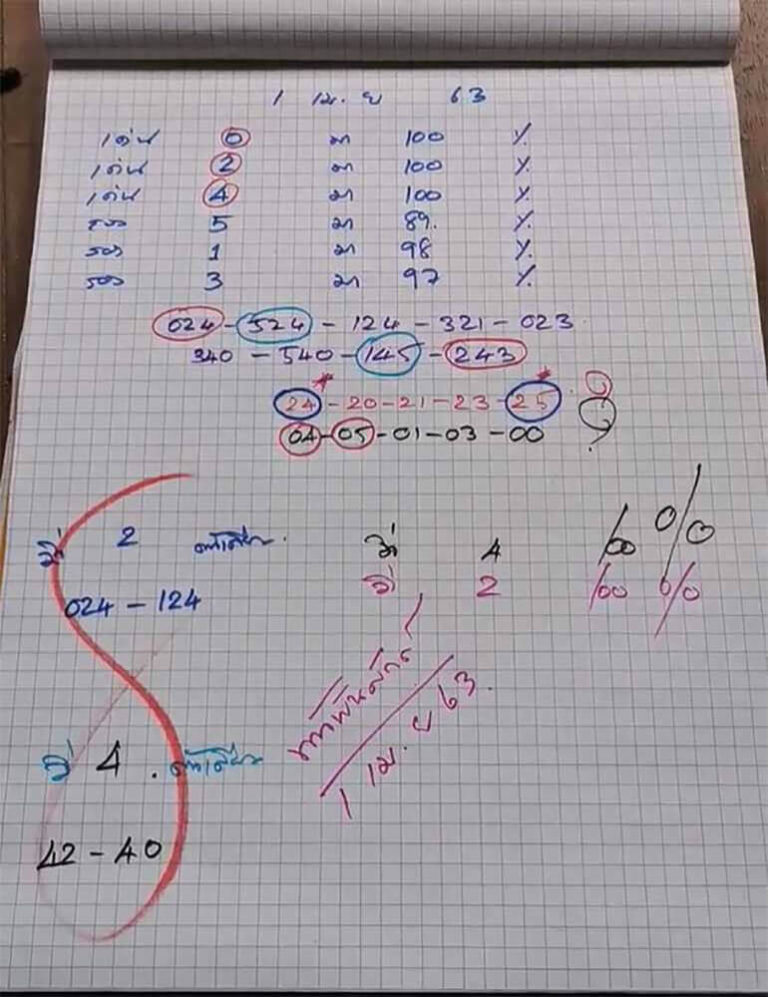 1 เม.ย 63
เด่น 0 มา 100 %
เด่น 2 มา 100 %
เด่น 4 มา 100 %
รอง 5 มา 89. %
รอง 1 มา 98 %
รอง 3 มา 97 %
024 - 524 - 124 - 321 - 023
340 - 540 - 145 - 243
24 - 20 - 21 - 23 - 25
04 - 05 - 01 - 03 - 00
วิ่ 2 ตัวเดียว.
024 - 124
วิ่ 4 100 %
วิ่ 2 100 %
1 เม.ย 63.
วิ่ 4 . ตัวเดียว
42 - 40